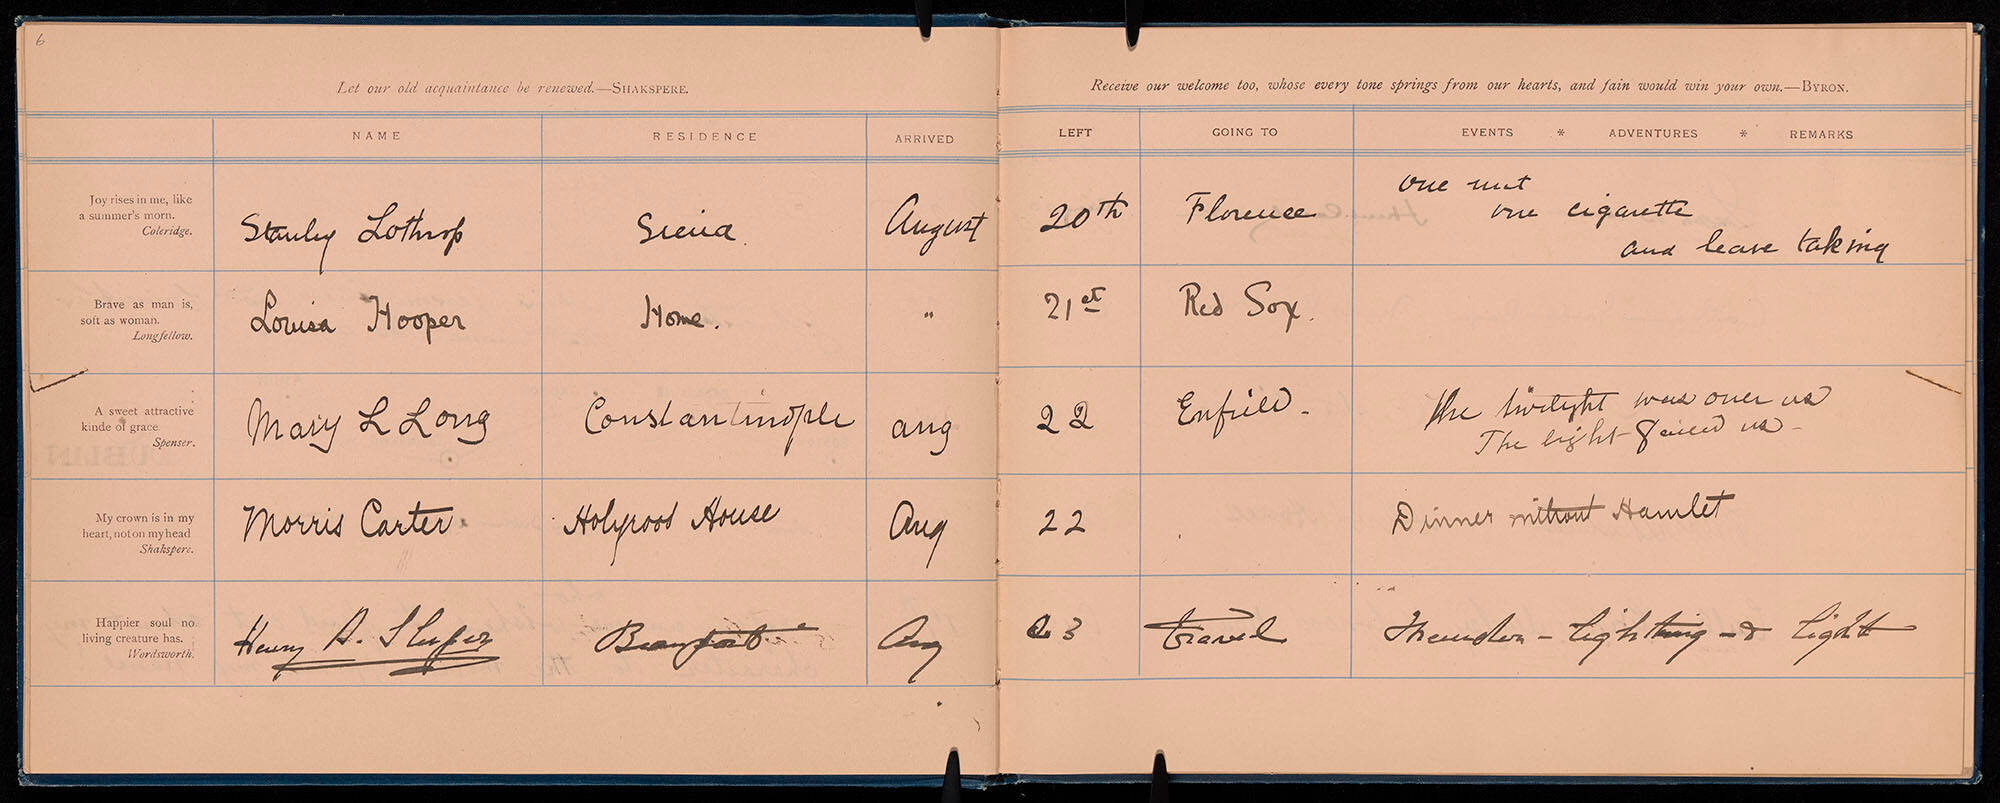 6
Let our old acquaintance be renewed.—SHAKSPERE.
Receive our welcome too, whose every tone springs from our hearts, and fain would win your own.—BYRON.
NAME RESIDENCE ARRIVED LEFT GOING TO EVENTS * ADVENTURES * REMARKS
Joy rises in me, like
a summer's morn.
Coleridge.
Stanley Lothrop Siena. August 20th Florence
one nut
one cigarette
and leave taking
Brave as man is,
soft as woman.
Longfellow.
Louisa Hooper Home. " 21st Red Sox.
A sweet attractive
kinde of grace
Spenser.
Mary L Long Constantinople aug 22 Enfield -
The twilight was over us
The light failed us -
My crown is in my
heart, not on my head
Shakspere.
Morris Carter Holyrood House Aug 22
Dinner without Hamlet
Happier soul no
living creature has.
Wordsworth.
Henry D. Sleeper Aug 23 travel
Thunder - lightning - & light